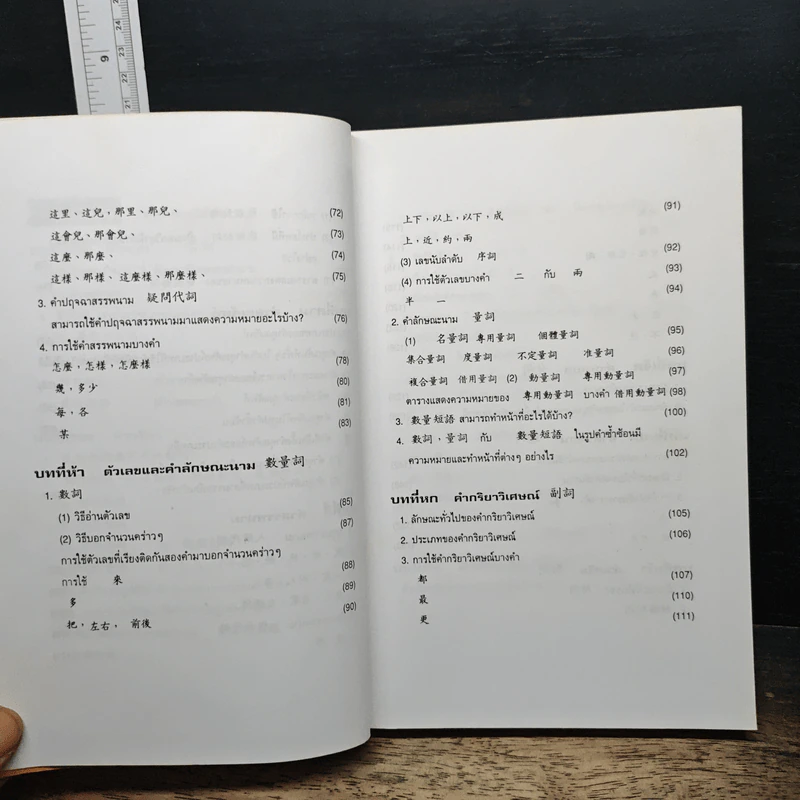 9
24
23
22
21
這里、這兒，那里、那兒、 (72)
這會兒、那會兒、 (73)
這麼、那麼、 (74)
這樣、那樣、 這麼樣、那麼樣、 (75)
3. คำปฤจฉาสรรพนาม 疑問代詞
สามารถใช้คำปฤจฉาสรรพนามมาแสดงความหมายอะไรบ้าง? (76)
4. การใช้คำสรรพนามบางคำ
怎麼，怎樣，怎麼樣 (78)
幾，多少 (80)
每，各 (81)
某 (83)
บทที่ห้า ตัวเลขและคำลักษณะนาม 數量詞
1. 數詞
(1) วิธีอ่านตัวเลข (85)
(2) วิธีบอกจำนวนคร่าวๆ (87)
การใช้ตัวเลขที่เรียงติดกันสองคำมาบอกจำนวนคร่าวๆ
การใช้ 來 (88)
多 (89)
把，左右， 前後 (90)
上下，以上，以下，成 (91)
上，近，約，兩
(3) เลขนับลำดับ 序詞 (92)
(4) การใช้ตัวเลขบางคำ 二 กับ 兩 (93)
半 一 (94)
2. คำลักษณะนาม 量詞
(1) 名量詞 專用量詞 個體量詞 (95)
集合量詞 度量詞 不定量詞 准量詞 (96)
複合量詞 借用量詞 (2) 動量詞 專用動量詞 (97)
ตารางแสดงความหมายของ 專用動量詞 บางคำ 借用動量詞 (98)
3. 數量短語 สามารถทำหน้าที่อะไรได้บ้าง? (100)
4. 數詞，量詞 กับ 數量短語 ในรูปคำซ้ำซ้อนมี
ความหมายและทำหน้าที่ต่างๆ อย่างไร (102)
บทที่หก คำกริยาวิเศษณ์ 副詞
1. ลักษณะทั่วไปของคำกริยาวิเศษณ์ (105)
2. ประเภทของคำกริยาวิเศษณ์ (106)
3. การใช้คำกริยาวิเศษณ์บางคำ
都 (107)
最 (110)
更 (111)